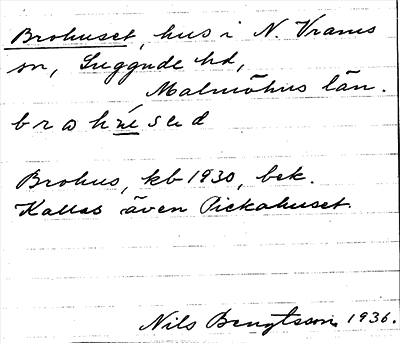 Brohuset, hus i N. Vrams
sn, Luggude hd,
Malmöhus län.
Brohus, kb 1930, bek.
Kallas även Pickahuset.
Nils Bengtsson, 1936.